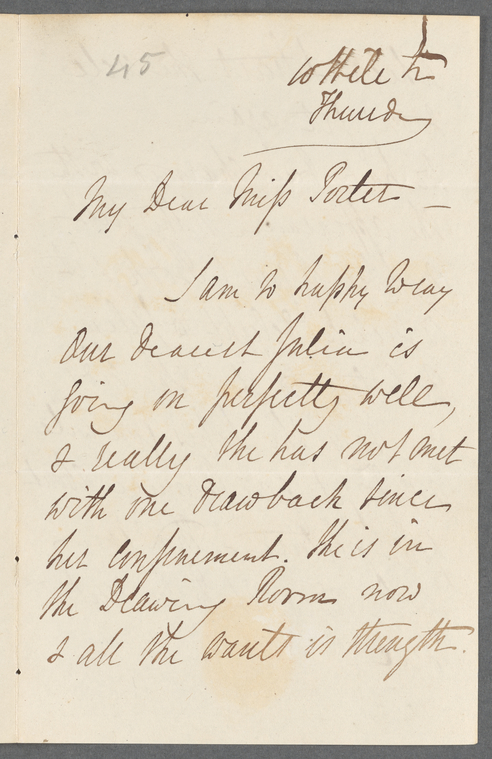 45
Thursdy
My Dear Miss Porter —
I am so happy to say
Our dearest Julia is
going on perfectly well,
& really she has not met
with one drawback since
her confinement. She is in
the Drawing Room now
& all she wants is strength.